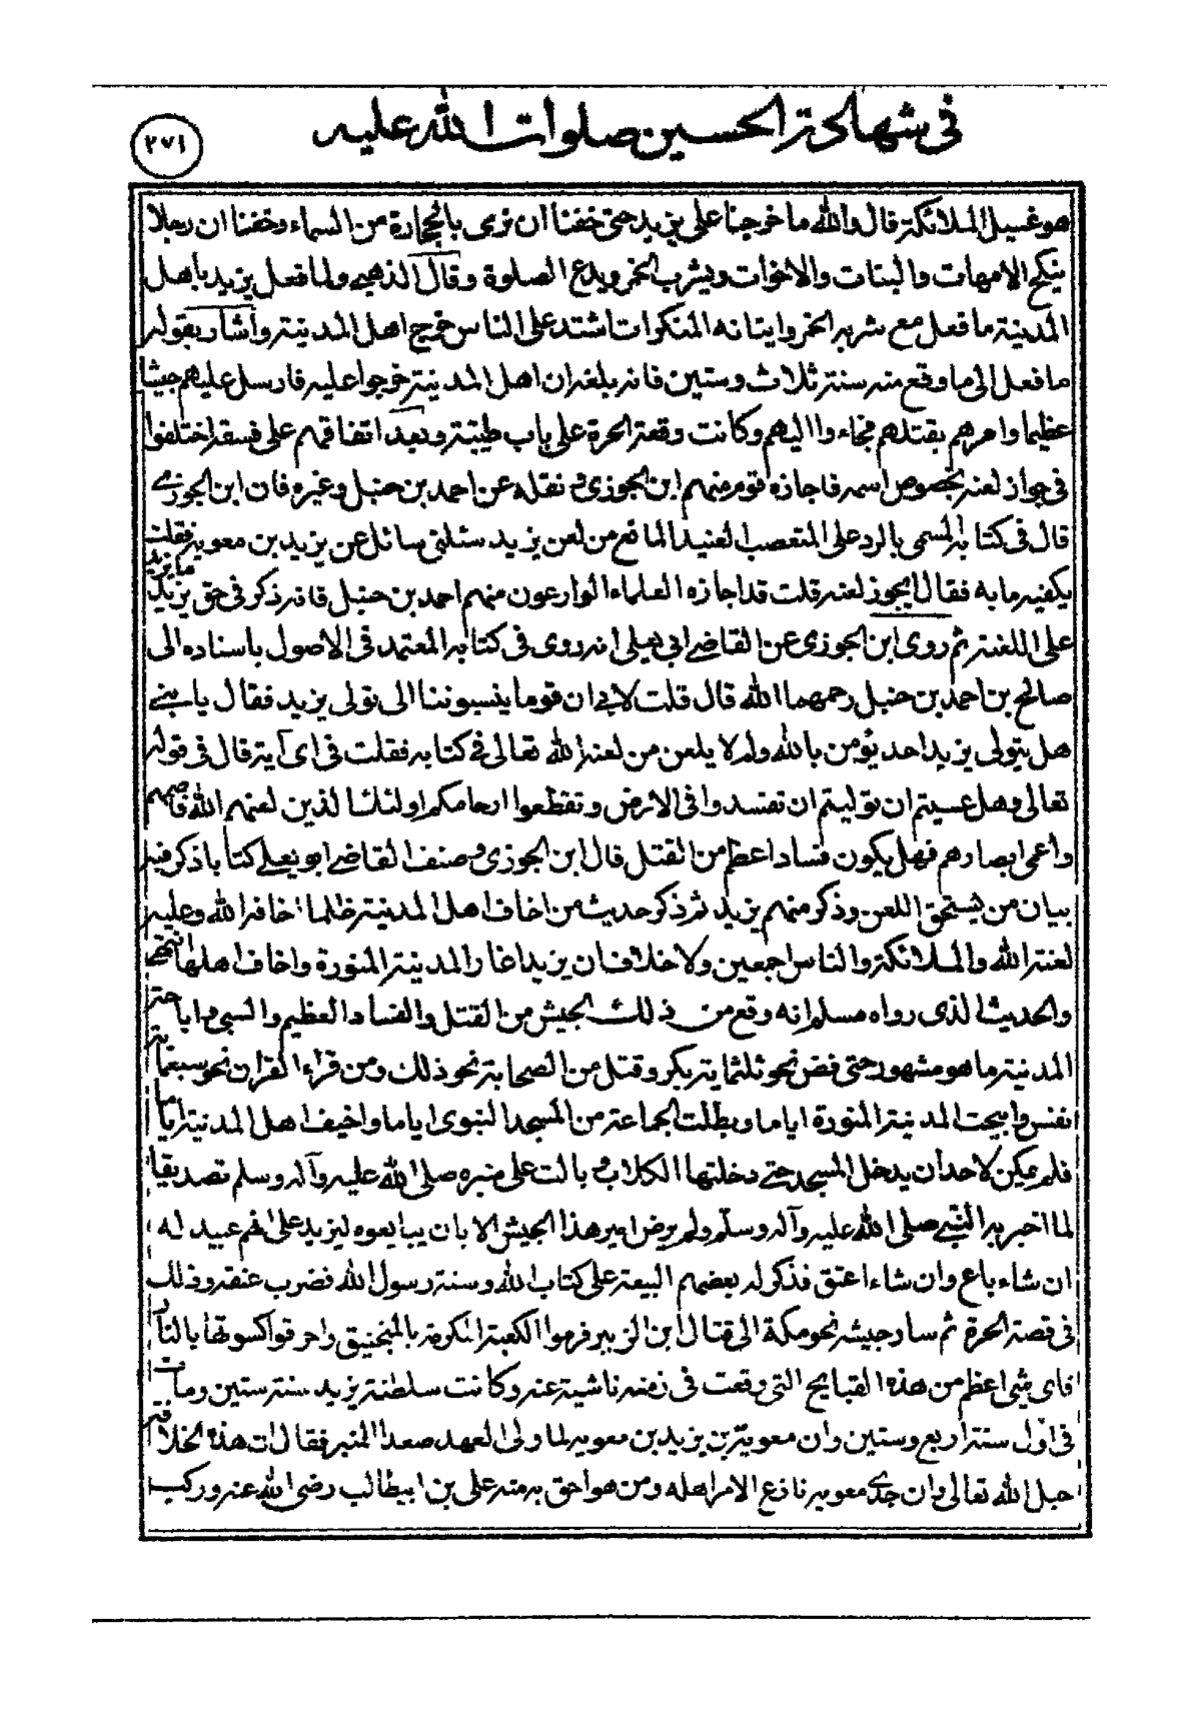 في شهادة الحسين صلوات الله عليه
٢٧١
هو غسيل الملائكة قال والله ما خرجنا على يزيد حتى خفنا ان نرمى بالحجارة من السماء وخفنا ان رجلا
ينكح الامهات والبنات والاخوات ويشرب الخمر ويدع الصلوة وقال الذهبي ولما فعل يزيد باهل
المدينة ما فعل مع شربه الخمر وايتانه المنكرات اشتد على الناس خرج اهل المدينة واشار بقوله
ما فعل الى ما وقع منه سنة ثلاث وستين فانه بلغه ان اهل المدينة خرجوا عليه فارسل عليهم جيشا
عظيما وامرهم بقتلهم فجاءوا اليهم وكانت وقعة الحرة على باب طيبة وبعد اتفاقهم على فسقه اختلفوا
في جواز لعنه بخصوص اسمه فاجازه قوم منهم ابن الجوزي و نقله عن احمد بن حنبل وغيره فان ابن الجوزي
قال في كتابه المسمى بالرد على المتعصب العنيد المانع من لعن يزيد سئلني سائل عن يزيد بن معوية فقلت
يكفيه ما به فقال ايجوز لعنه قلت قد اجازه العلماء الوارعون منهم احمد بن حنبل فانه ذكر في حق يزيد ما يزيد
على اللعنة ثم روى ابن الجوزي عن القاضي ابي يعلى انه روى في كتابه المعتمد في الاصول باسناده الى
صالح بن احمد بن حنبل رحمهما الله قال قلت لابي ان قوما ينسبوننا الى تولى يزيد فقال يا بني
هل يتولى يزيد احد يؤمن بالله ولم لا يلعن من لعنه الله تعالى في كتابه فقلت في اي آية قال في قوله
تعالى وهل عسيتم ان توليتم ان تفسدوا في الارض وتقطعوا ارحامكم اولئك الذين لعنهم الله فاصمهم
واعمى ابصارهم فهل يكون فساد اعظم من القتل قال ابن الجوزي و صنف القاضي ابو يعلي كتابا ذكر فيه
بيان من يستحق اللعن وذكر منهم يزيد ثم ذكر حديث من اخاف اهل المدينة ظلما اخافه الله وعليه
لعنة الله والملائكة والناس اجمعين ولا خلاف ان يزيد اغار المدينة المنورة واخاف اهلها انتهى
والحديث الذي رواه مسلم انه وقع من ذلك الجيش من القتل والفساد العظيم والسبي و اباحة
المدينة ما هو مشهور حتى فض نحو ثلثماية بكر وقتل من الصحابة نحو ذلك ومن قراء القران نحو سبعماية
نفس وابيحت المدينة المنورة اياما وبطلت الجماعة من المسجد النبوي اياما واخيف اهل المدينة اياما
فلم يمكن لاحد ان يدخل المسجد حتى دخلتها الكلاب و بالت على منبره صلى الله عليه وآله وسلم تصديقا
لما اخبر به النبي صلى الله عليه وآله وسلم ولم يرض امير هذا الجيش الا بان يبايعوه ليزيد على انهم عبيد له
ان شاء باع وان شاء اعتق فذكر له بعضهم البيعة على كتاب الله وسنة رسول الله فضرب عنقه وذلك
في قصة الحرة ثم سار جيشه نحو مكة الى قتال ابن الزبير فرموا الكعبة المكرمة بالمنجنيق واحرقوا كسوتها بالنار
فاي شئ اعظم من هذه القبايح التي وقعت في زمنه ناشية عنه وكانت سلطنة يزيد سنة ستين ومات
في اول سنة اربع وستين وان معوية بن يزيد بن معوية لما ولى العهد صعد المنبر فقال ان هذه الخلافة
حبل الله تعالى وان جدي معوية نازع الامر اهله ومن هو احق به منه علي بن ابيطالب رضي الله عنه وركب